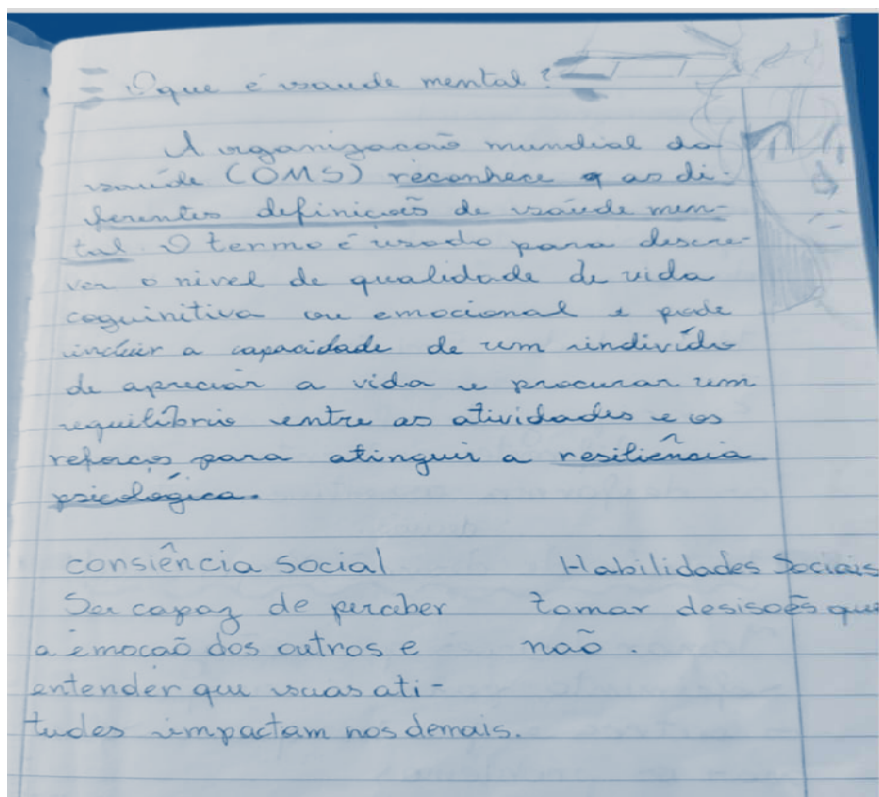 O que é saude mental?
A organizacaõ mundial da
saúde (OMS) reconhece q as di-
ferentes definicoẽs de saúde men-
tal O termo é usado para descre-
ver o nivel de qualidade de vida
coguinitiva ou emocional e pode
incluir a capacidade de um indivídu
de apreciar a vida e procurar um
equilíbrio entre as atividades e os
reforcos para atinguir a resiliência
psicológica.
consiência social
Ser capaz de perceber
a emocaõ dos outros e
entender que suas ati-
tudes impactam nos demais.
Habilidades Sociais
tomar desisoẽs que
naõ.